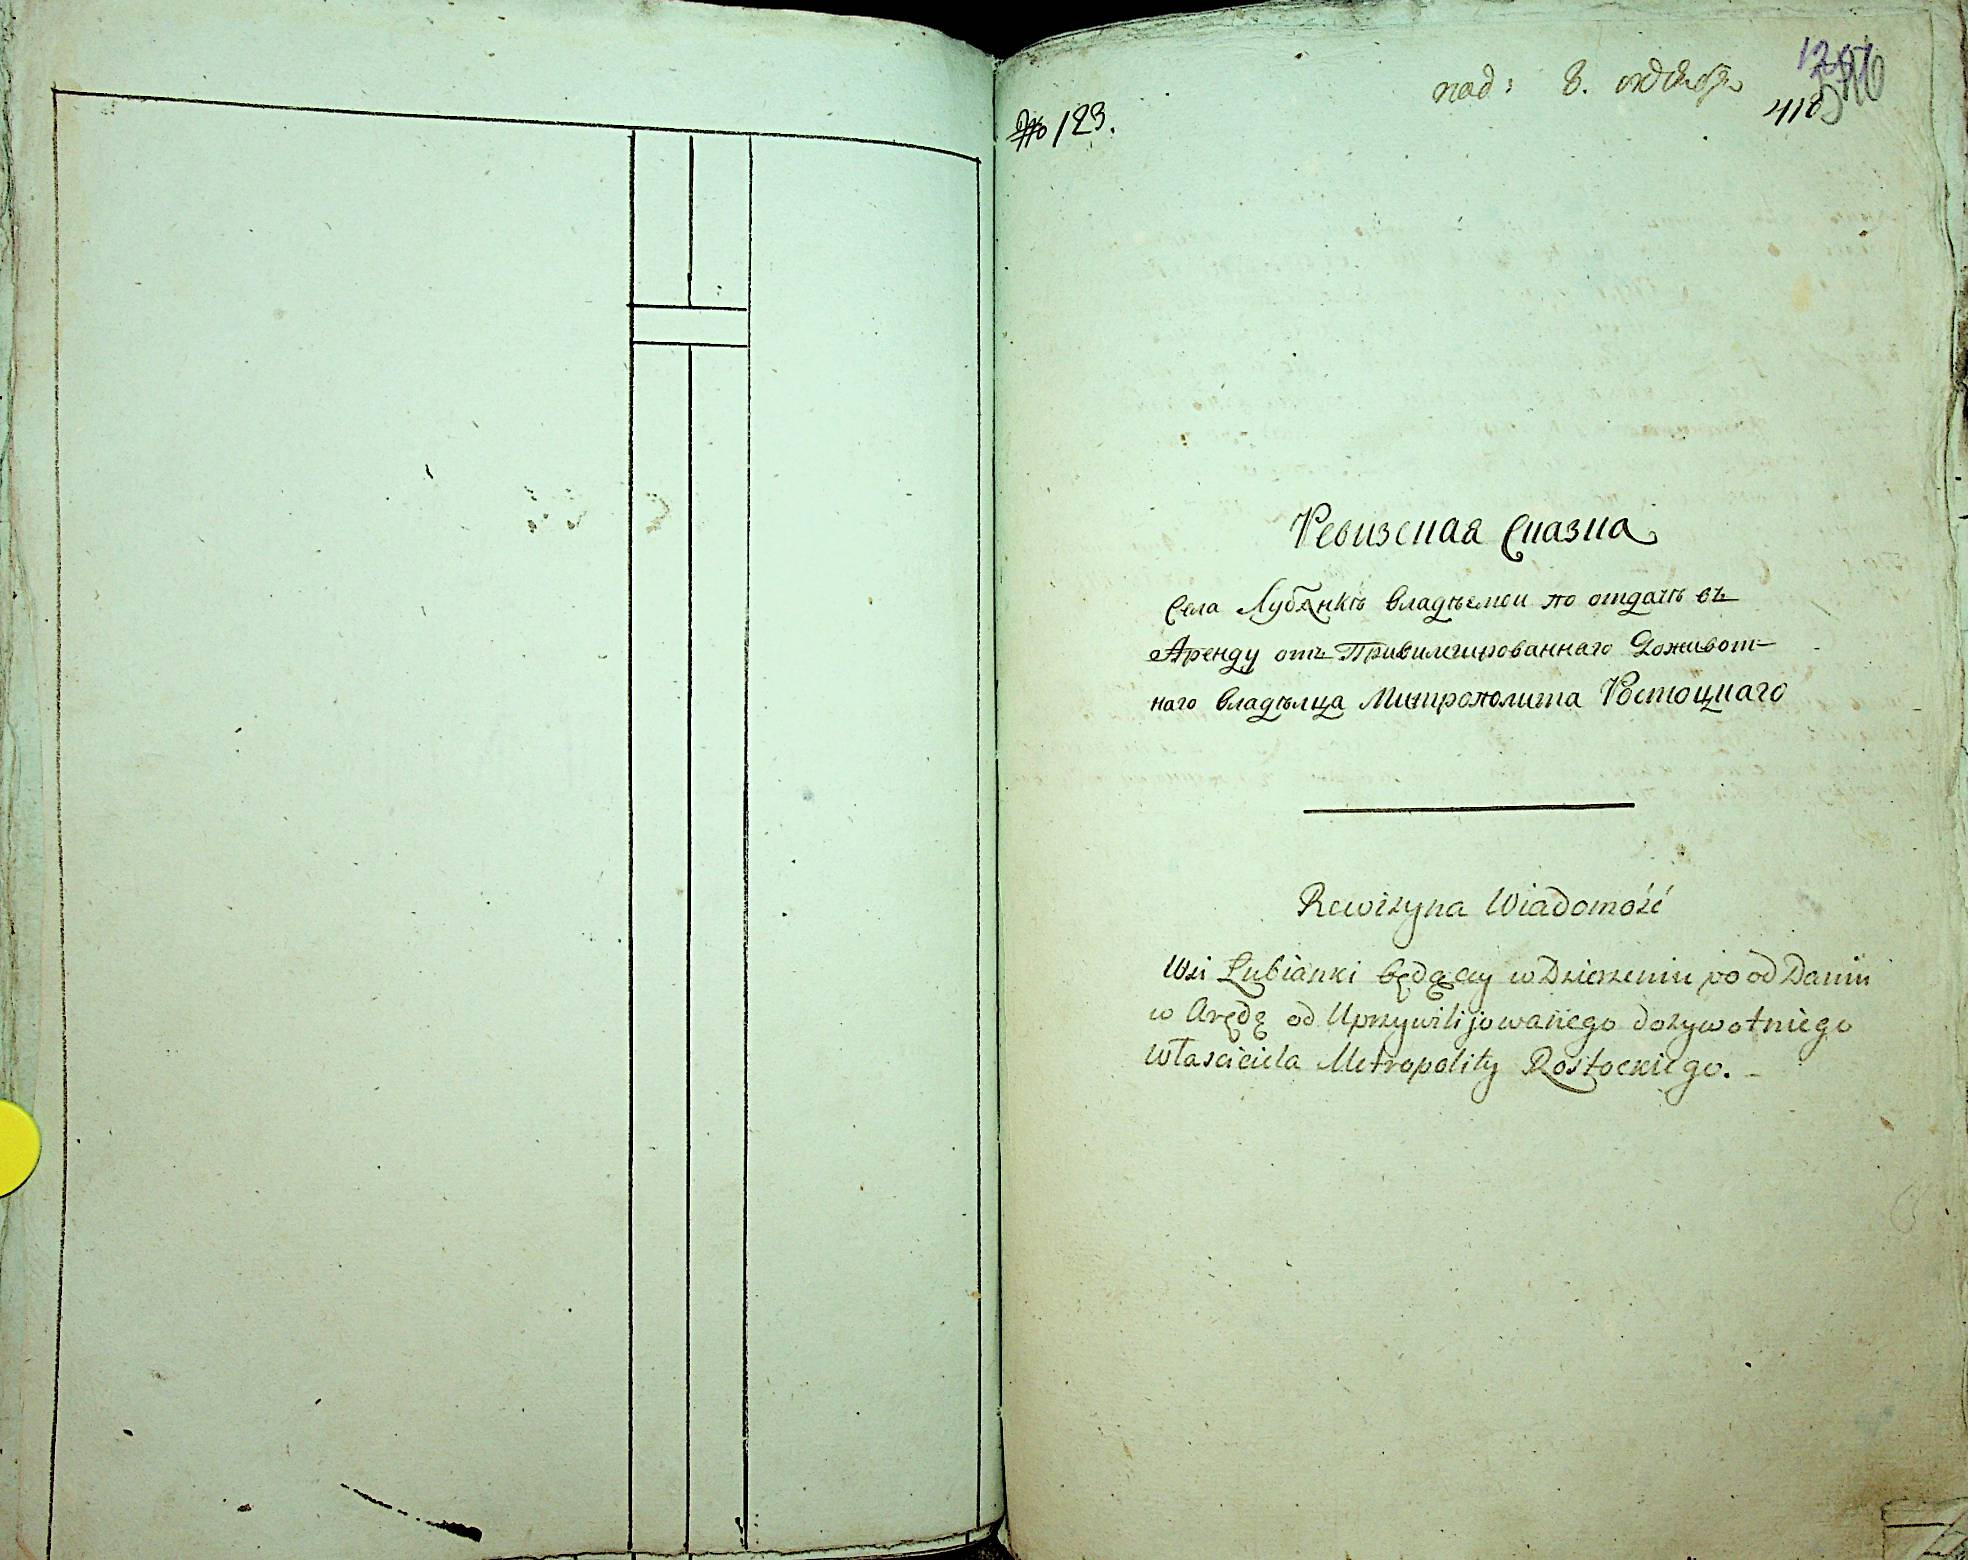 № 123.
под: 8. октября
418
Ревизская Сказка
Села Лубянкѣ владѣемой по отдачѣ въ
Аренду отъ Привилегированнаго Доживот-
наго владѣлца Митрополита Ростоцкаго
Rewizyna Wiadomość
Wsi Lubianki będącey w Dzierzeniu po od Daniu
w Arędę od Uprzywilijowanego dozywotniego
własciciela Metropolity Rostockiego. -